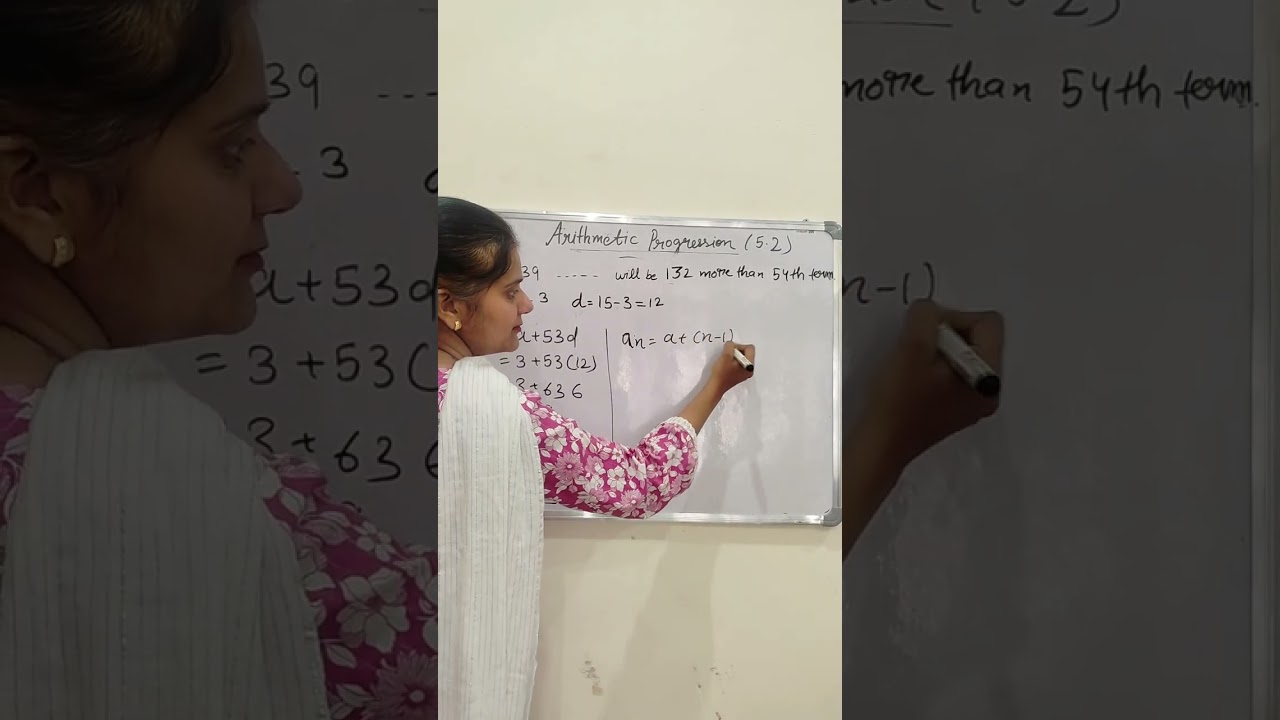 Arithmetic Progression (5.2)
39 ----- will be 132 more than 54th term
3 d = 15-3 = 12
a+53d
= 3 + 53(12)
3 + 636
an = a + (n-1)